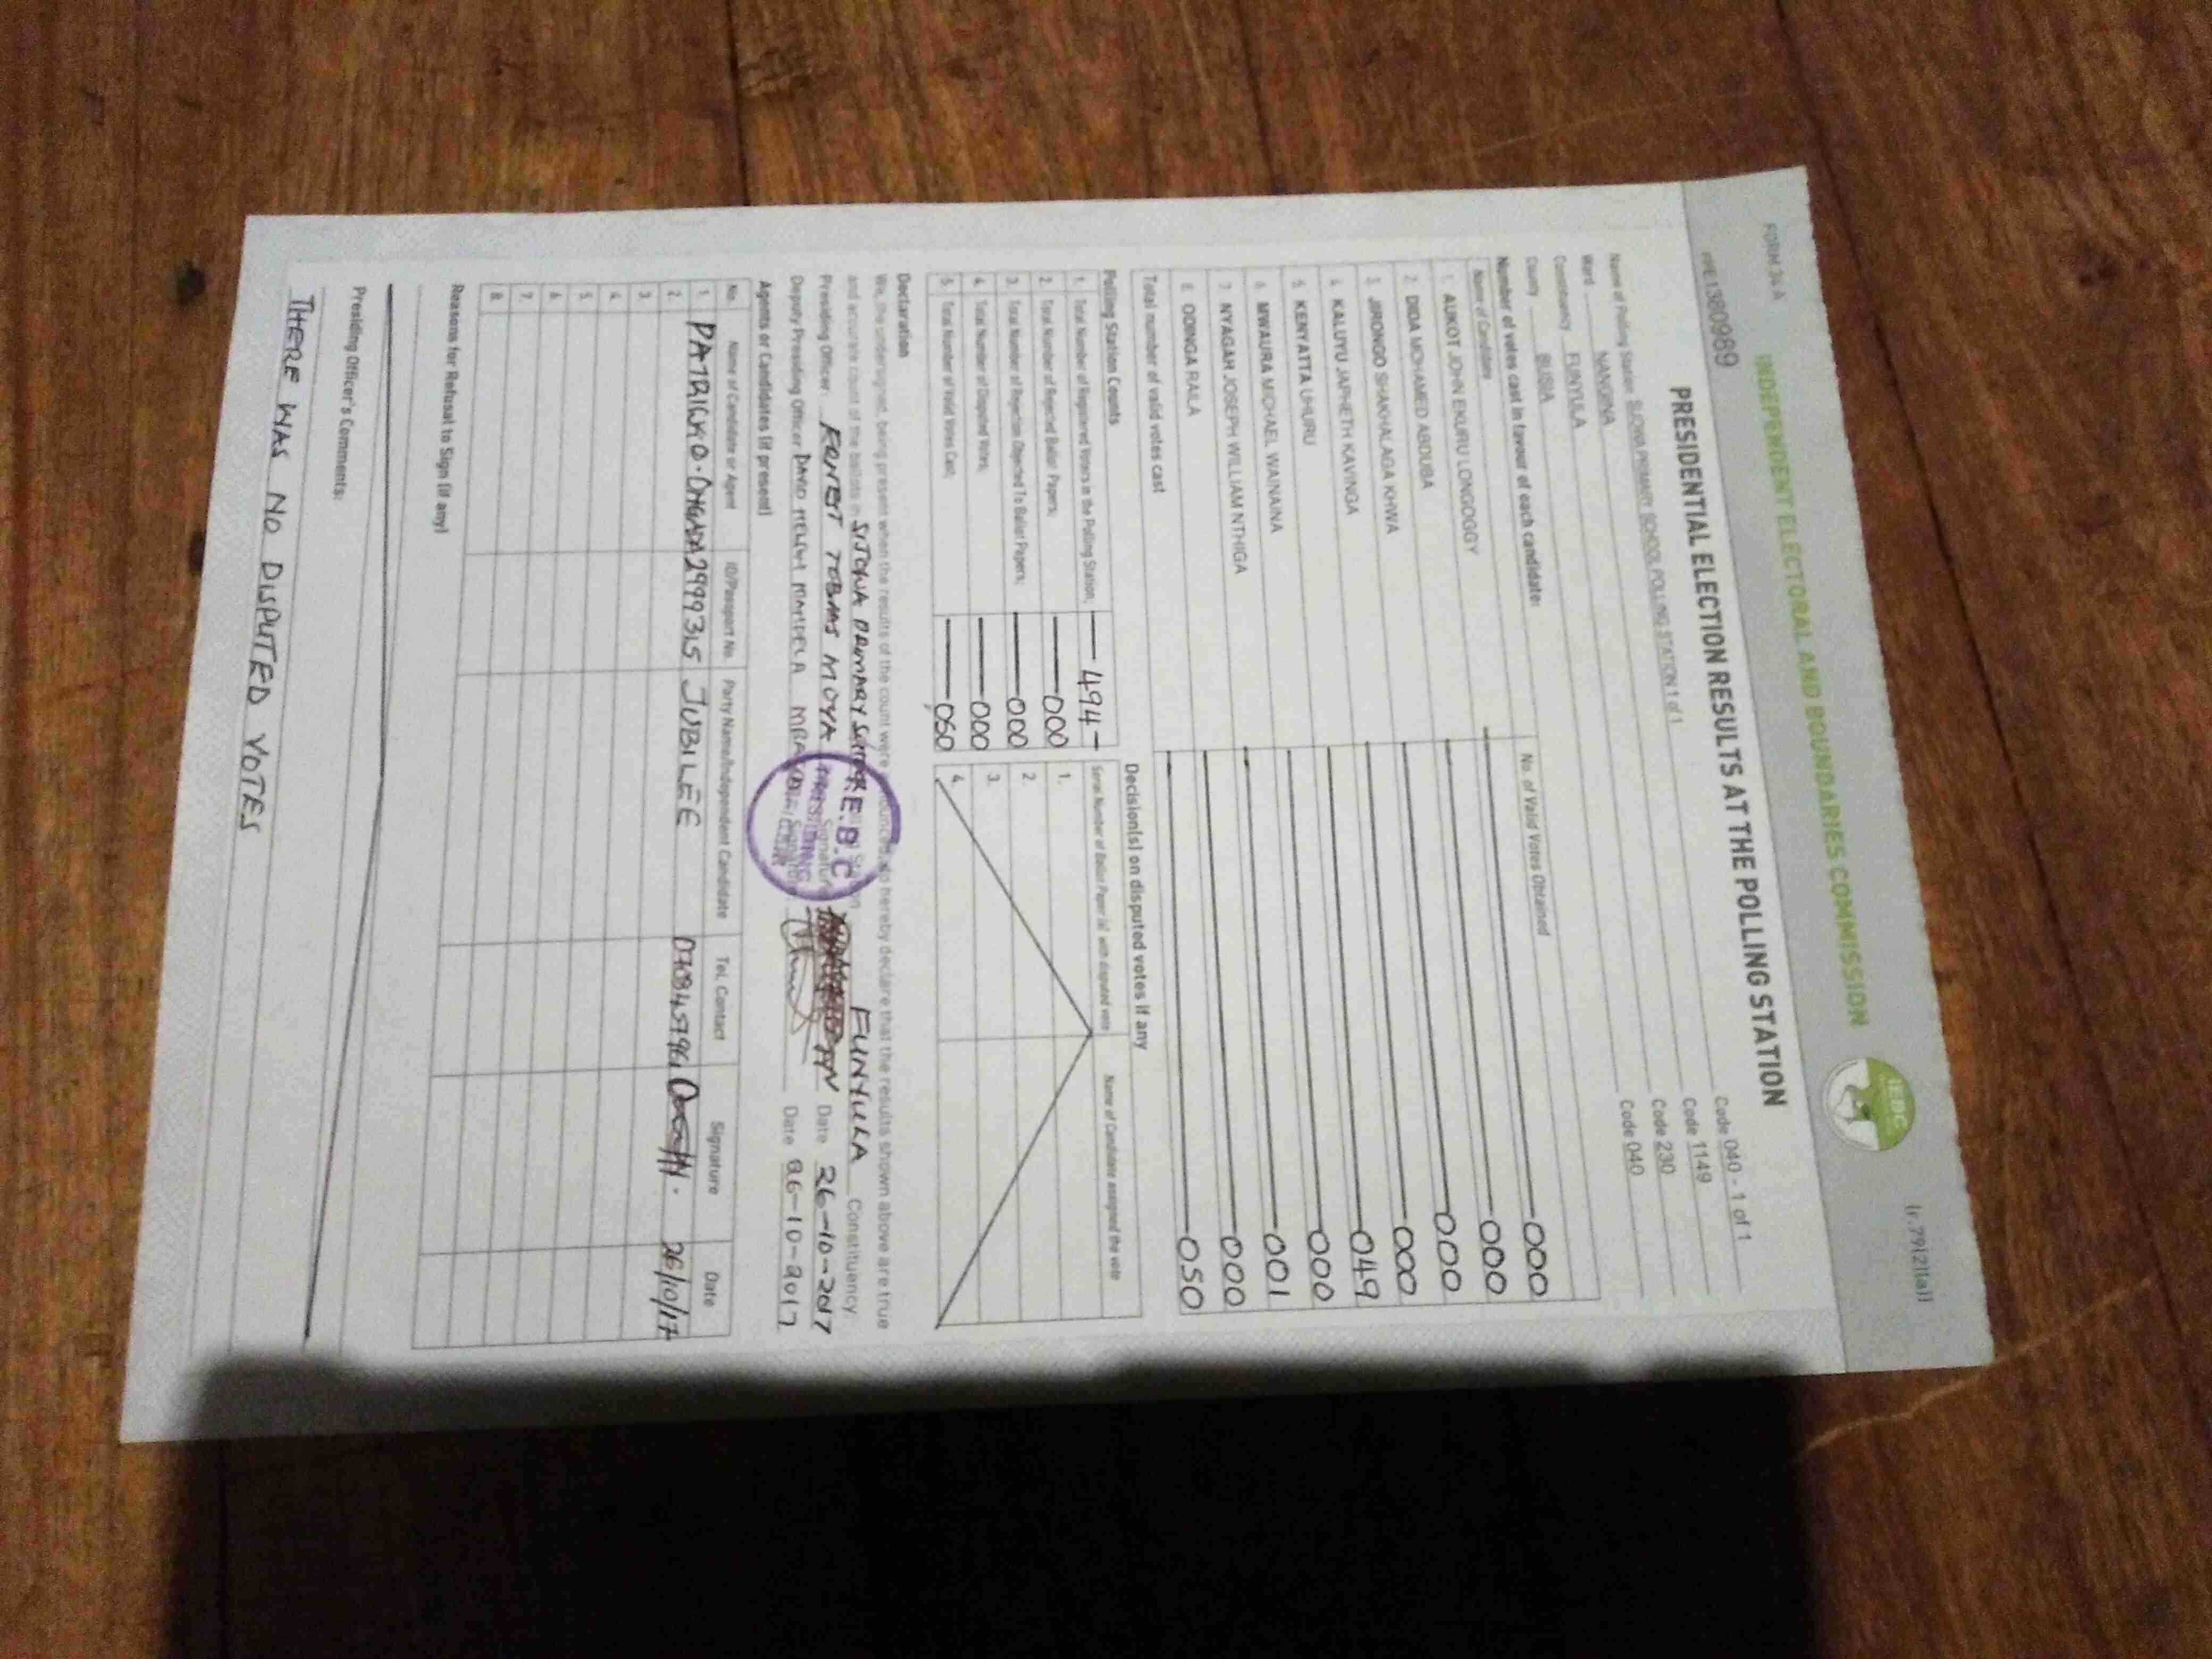 FORM 34 A
INDEPENDENT ELECTORAL AND BOUNDARIES COMMISSION
IEBC
(r.79(2)(a))
PRESIDENTIAL ELECTION RESULTS AT THE POLLING STATION
Name of Polling Station SIJOWA PRIMARY SCHOOL POLLING STATION 1 of 1 Code 040 - 1 of 1
Ward NANGINA Code 1149
Constituency FUNYULA Code 230
County BUSIA Code 040
Number of votes cast in favour of each candidate:
Name of Candidate No. of Valid Votes Obtained
1. AUKOT JOHN EKURU LONGOGGY 000
2. DIDA MOHAMED ABDUBA 000
3. JIRONGO SHAKHALAGA KHWA 000
4. KALUYU JAPHETH KAVINGA 000
5. KENYATTA UHURU 049
6. MWAURA MICHAEL WAINAINA 000
7. NYAGAH JOSEPH WILLIAM NTHIGA 001
8. ODINGA RAILA 000
Total number of valid votes cast 050
Polling Station Counts
1. Total Number of Registered Voters in the Polling Station; 494
2. Total Number of Rejected Ballot Papers; 000
3. Total Number of Rejection Objected To Ballot Papers; 000
4. Total Number of Disputed Votes; 000
5. Total Number of Valid Votes Cast; 050
Decision(s) on disputed votes if any
Serial Number of Ballot Paper (s) with disputed vote Name of Candidate assigned the vote
1.
2.
3.
4.
Declaration
We, the undersigned, being present when the results of the count were announced, do hereby declare that the results shown above are true
and accurate count of the ballots in SIJOWA PRIMARY FUNYULA Constituency.
Presiding Officer: MOYA Signature Date 26-10-2017
Deputy Presiding Officer DAVID Signature Date 26-10-2017
Agents or Candidates (if present)
No. Name of Candidate or Agent ID/Passport No. Party Name/Independent Candidate Tel. Contact Signature Date
1. PATRICK O. JUBILEE 26/10/17
2.
3.
4.
5.
6.
7.
8.
Reasons for Refusal to Sign (if any)
Presiding Officer's Comments:
THERE WAS NO DISPUTED VOTES